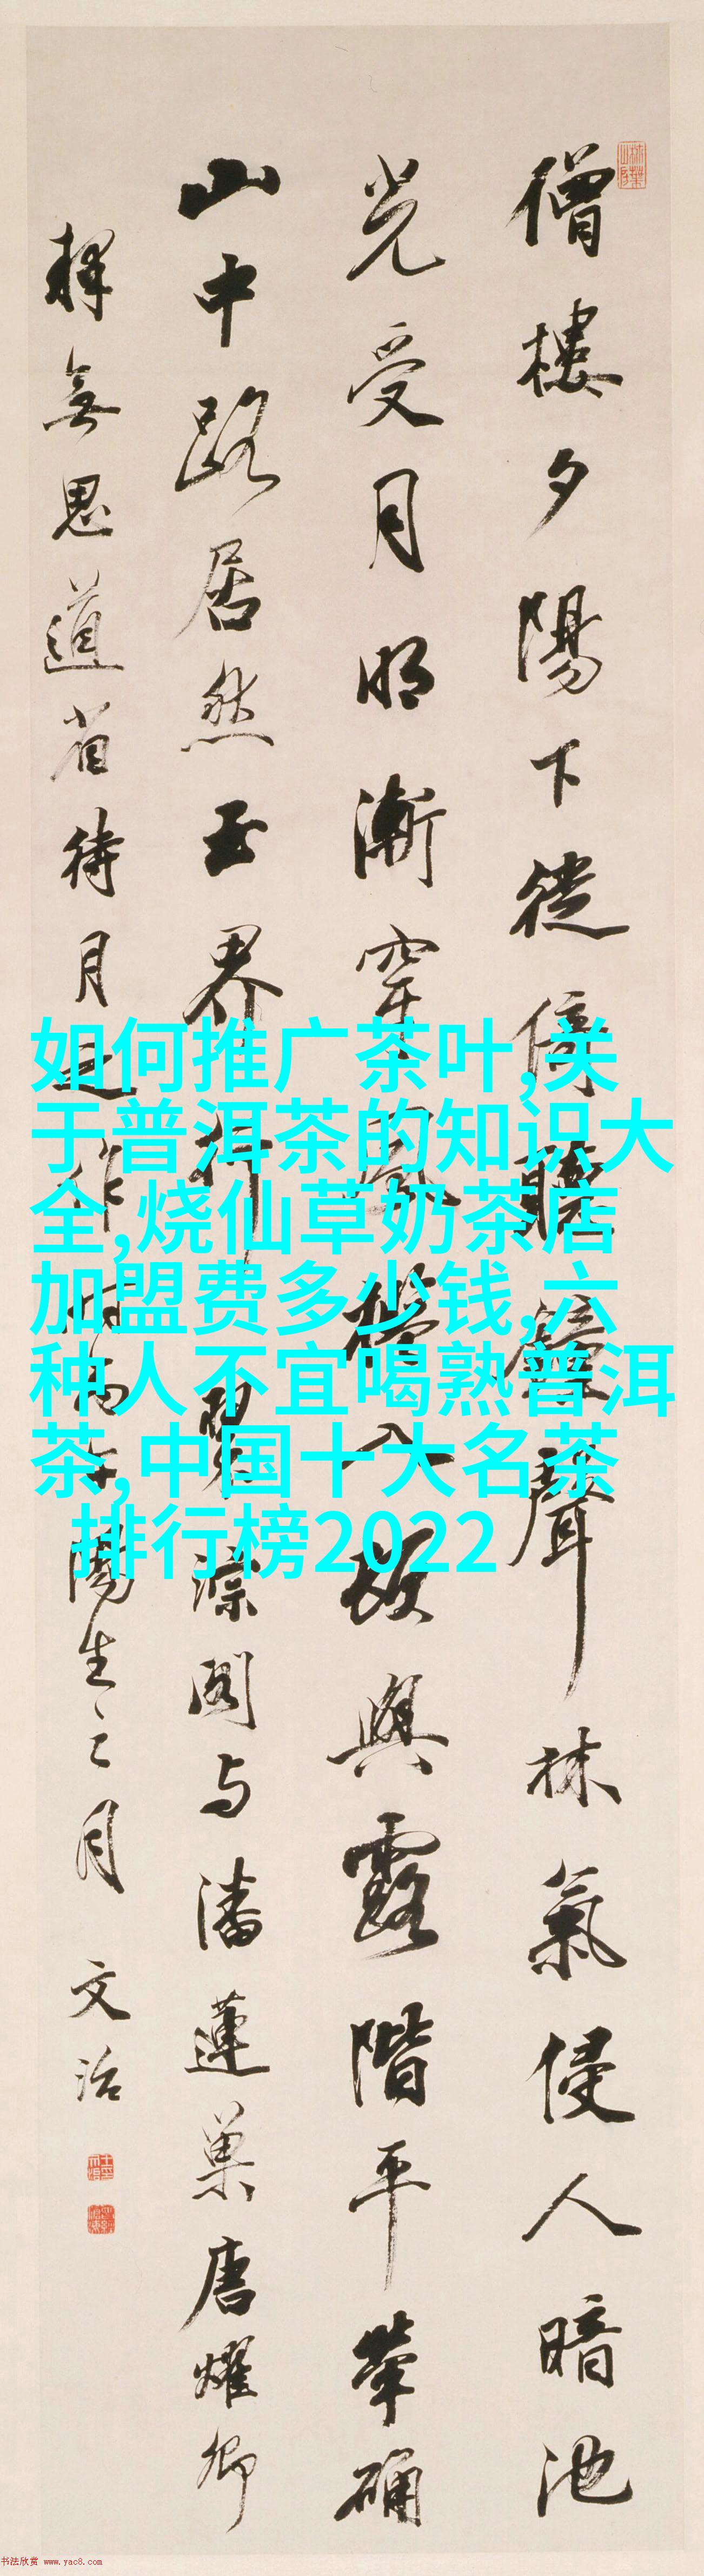 僧樓夕陽下徙倚聽鐘聲林氣侵人暗池
光受月明漸穿風檻入故與露階平華硐
山中路居然玉界行
翠淙閣与潘蓮巢唐耀卿
擇無思道省待月之作 陽生之月 文治
如何推广茶叶,关
于普洱茶的知识大
全,烧仙草奶茶店
加盟费多少钱,六
种人不宜喝熟普洱
茶,中国十大名茶
排行榜2022
书法欣赏 www.yac8.com